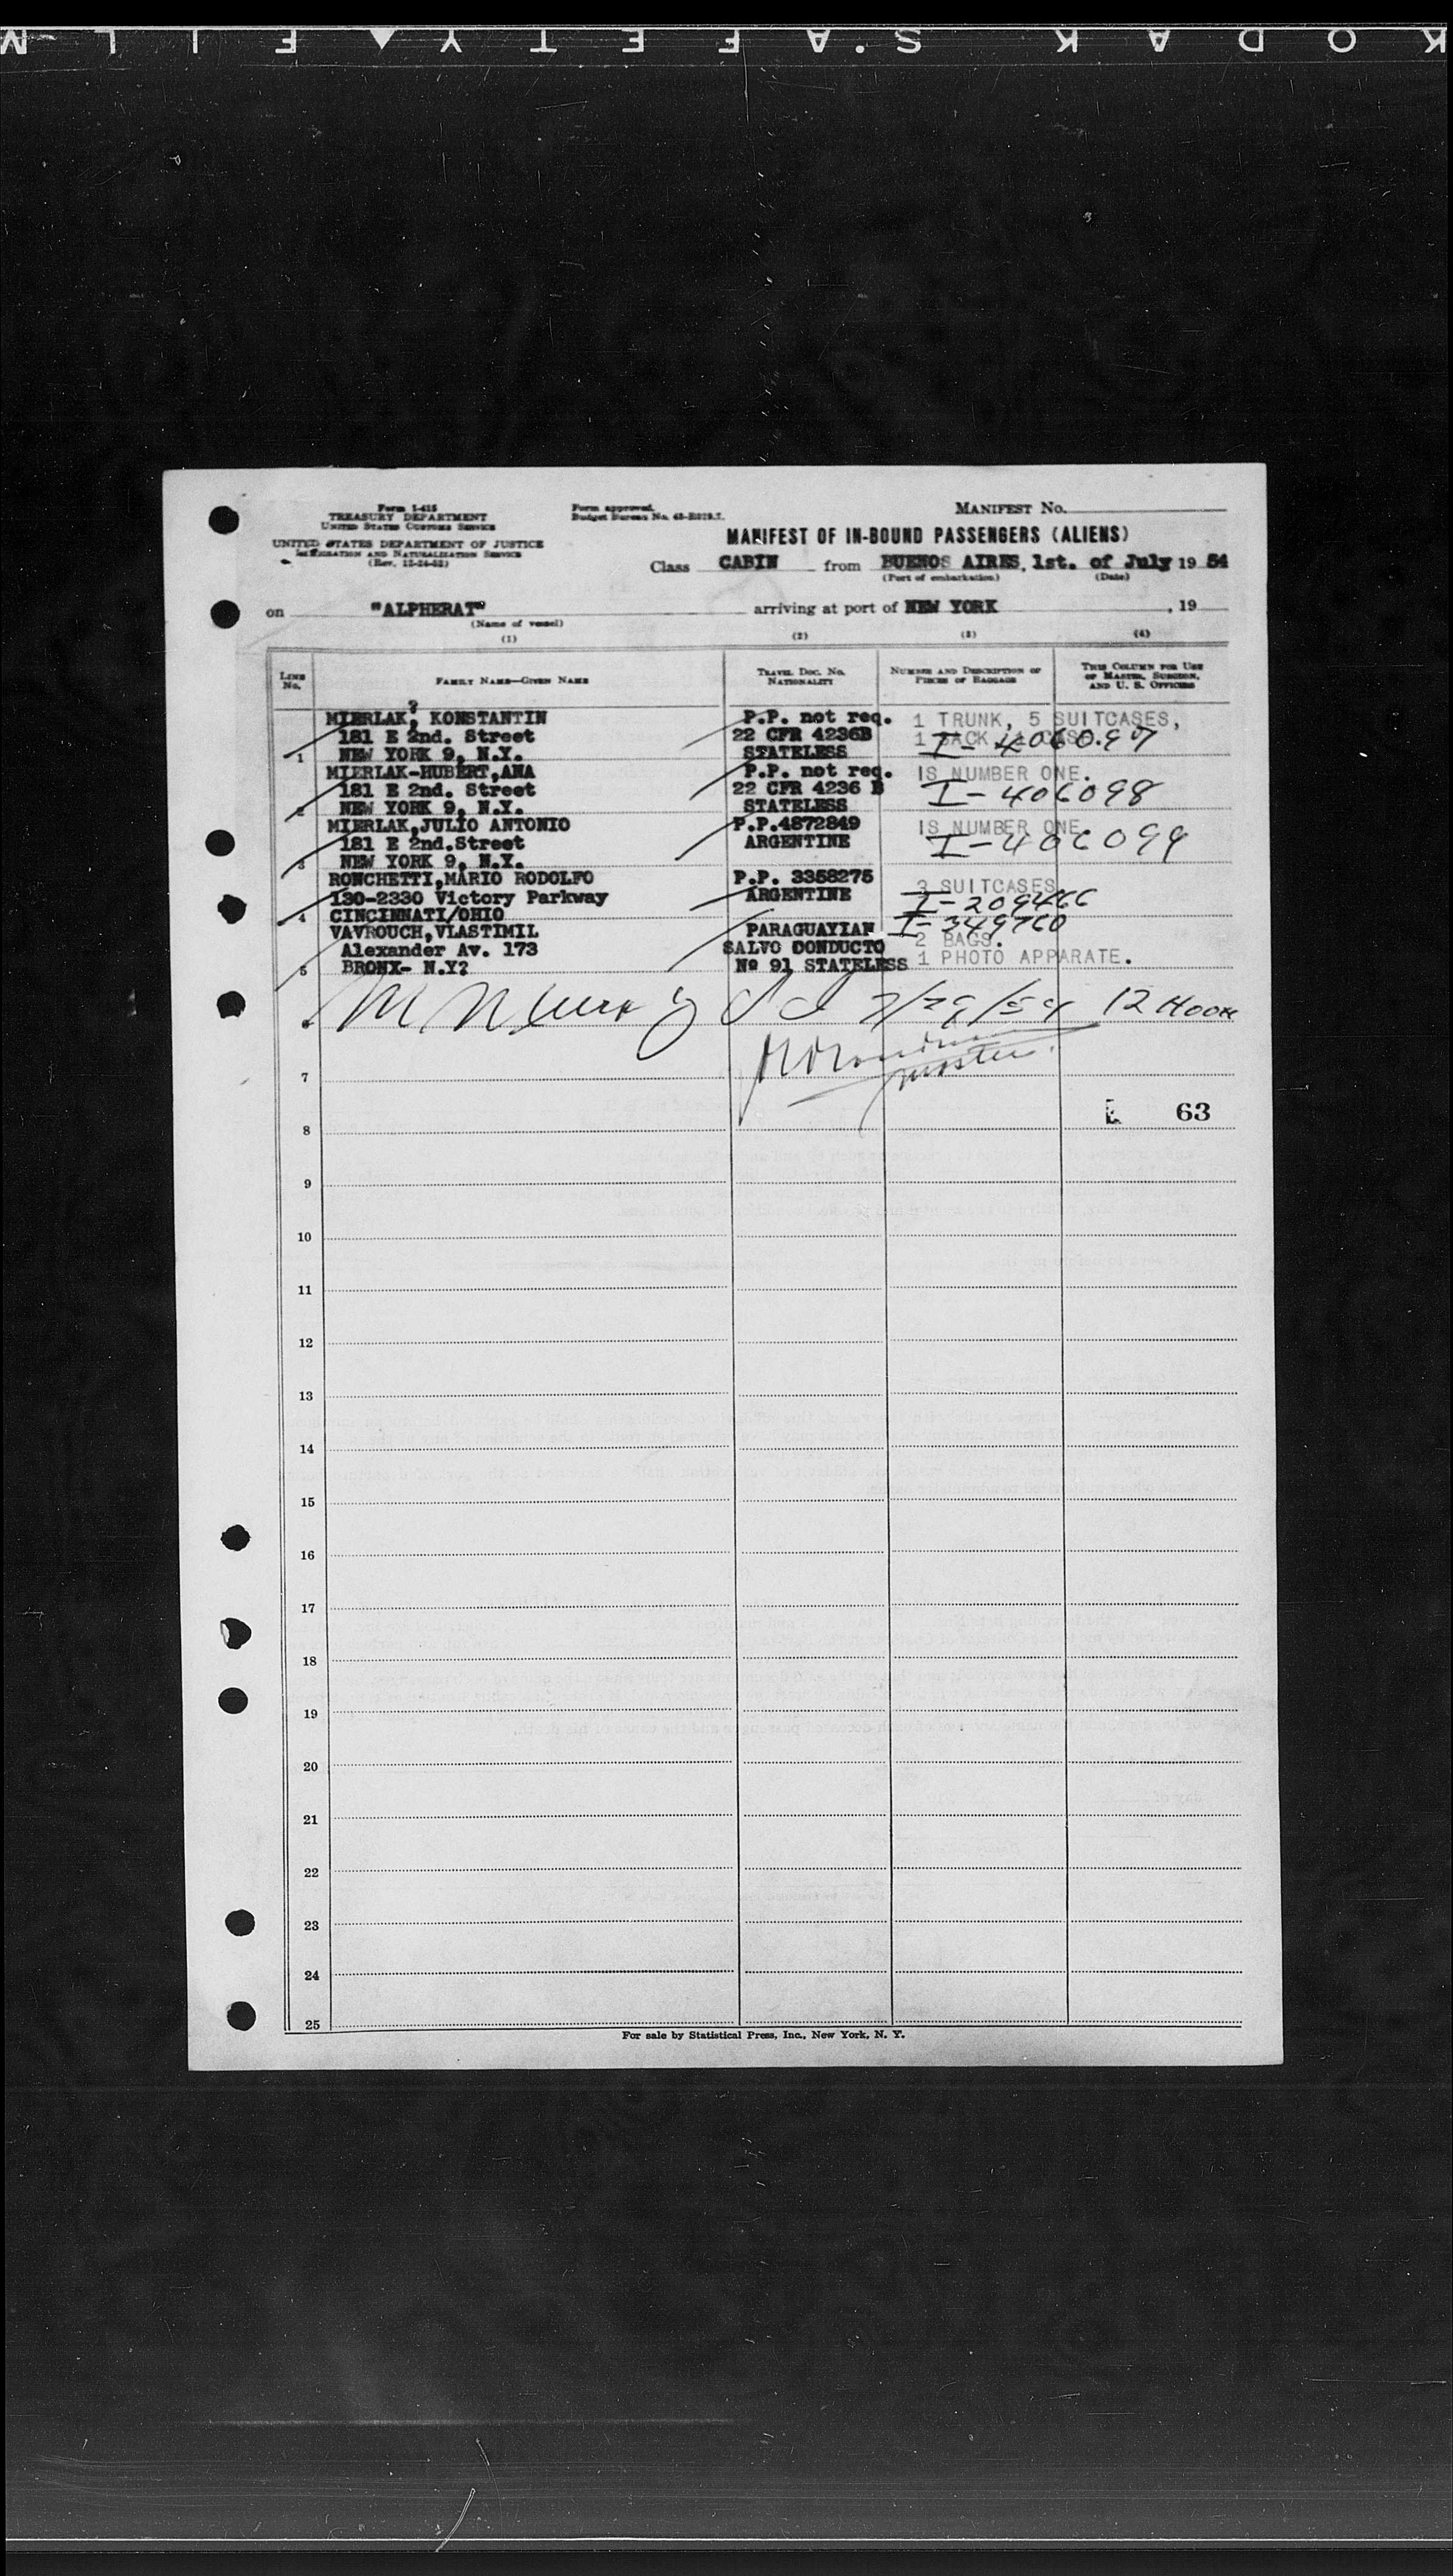 KODAK SAFETY FILM
Form I-415
TREASURY DEPARTMENT
UNITED STATES CUSTOMS SERVICE
UNITED STATES DEPARTMENT OF JUSTICE
IMMIGRATION AND NATURALIZATION SERVICE
(Rev. 12-24-52)
Form approved.
Budget Bureau No.
MANIFEST No.
MANIFEST OF IN-BOUND PASSENGERS (ALIENS)
Class CABIN from BUENOS AIRES, 1st. of July 19 54
(Port of embarkation) (Date)
on "ALPHERAT" arriving at port of NEW YORK , 19
(Name of vessel)
(1) (2) (3) (4)
LINE No. FAMILY NAME—GIVEN NAME TRAVEL DOC. NO. NATIONALITY NUMBER AND DESCRIPTION OF PIECES OF BAGGAGE THIS COLUMN FOR USE OF MASTER, SURGEON, AND U. S. OFFICERS
MIERLAK, KONSTANTIN P.P. not req. 1 TRUNK, 5 SUITCASES,
181 E 2nd. Street 22 CFR 4236B 1 SACK I-406097
1 NEW YORK 9, N.Y. STATELESS
MIERLAK-HUBERT,ANA P.P. not req. IS NUMBER ONE.
181 E 2nd. Street 22 CFR 4236 B I-406098
2 NEW YORK 9, N.Y. STATELESS
MIERLAK,JULIO ANTONIO P.P.4872849 IS NUMBER ONE
181 E 2nd.Street ARGENTINE I-406099
3 NEW YORK 9, N.Y.
RONCHETTI,MARIO RODOLFO P.P. 3358275 3 SUITCASES
130-2330 Victory Parkway ARGENTINE I-209466
4 CINCINNATI/OHIO I-349760
VAVROUCH,VLASTIMIL PARAGUAYIAN 2 BAGS.
Alexander Av. 173 SALVO CONDUCTO 1 PHOTO APPARATE.
5 BRONX- N.Y? Nº 91 STATELESS
6 7/29/54 12 Noon
master
7
63
8
9
10
11
12
13
14
15
16
17
18
19
20
21
22
23
24
25
For sale by Statistical Press, Inc., New York, N. Y.